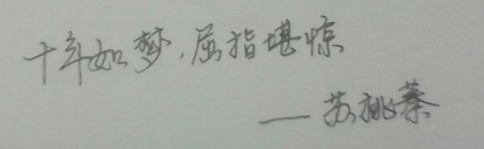 十年如梦，屈指堪惊
——苏桃蓁